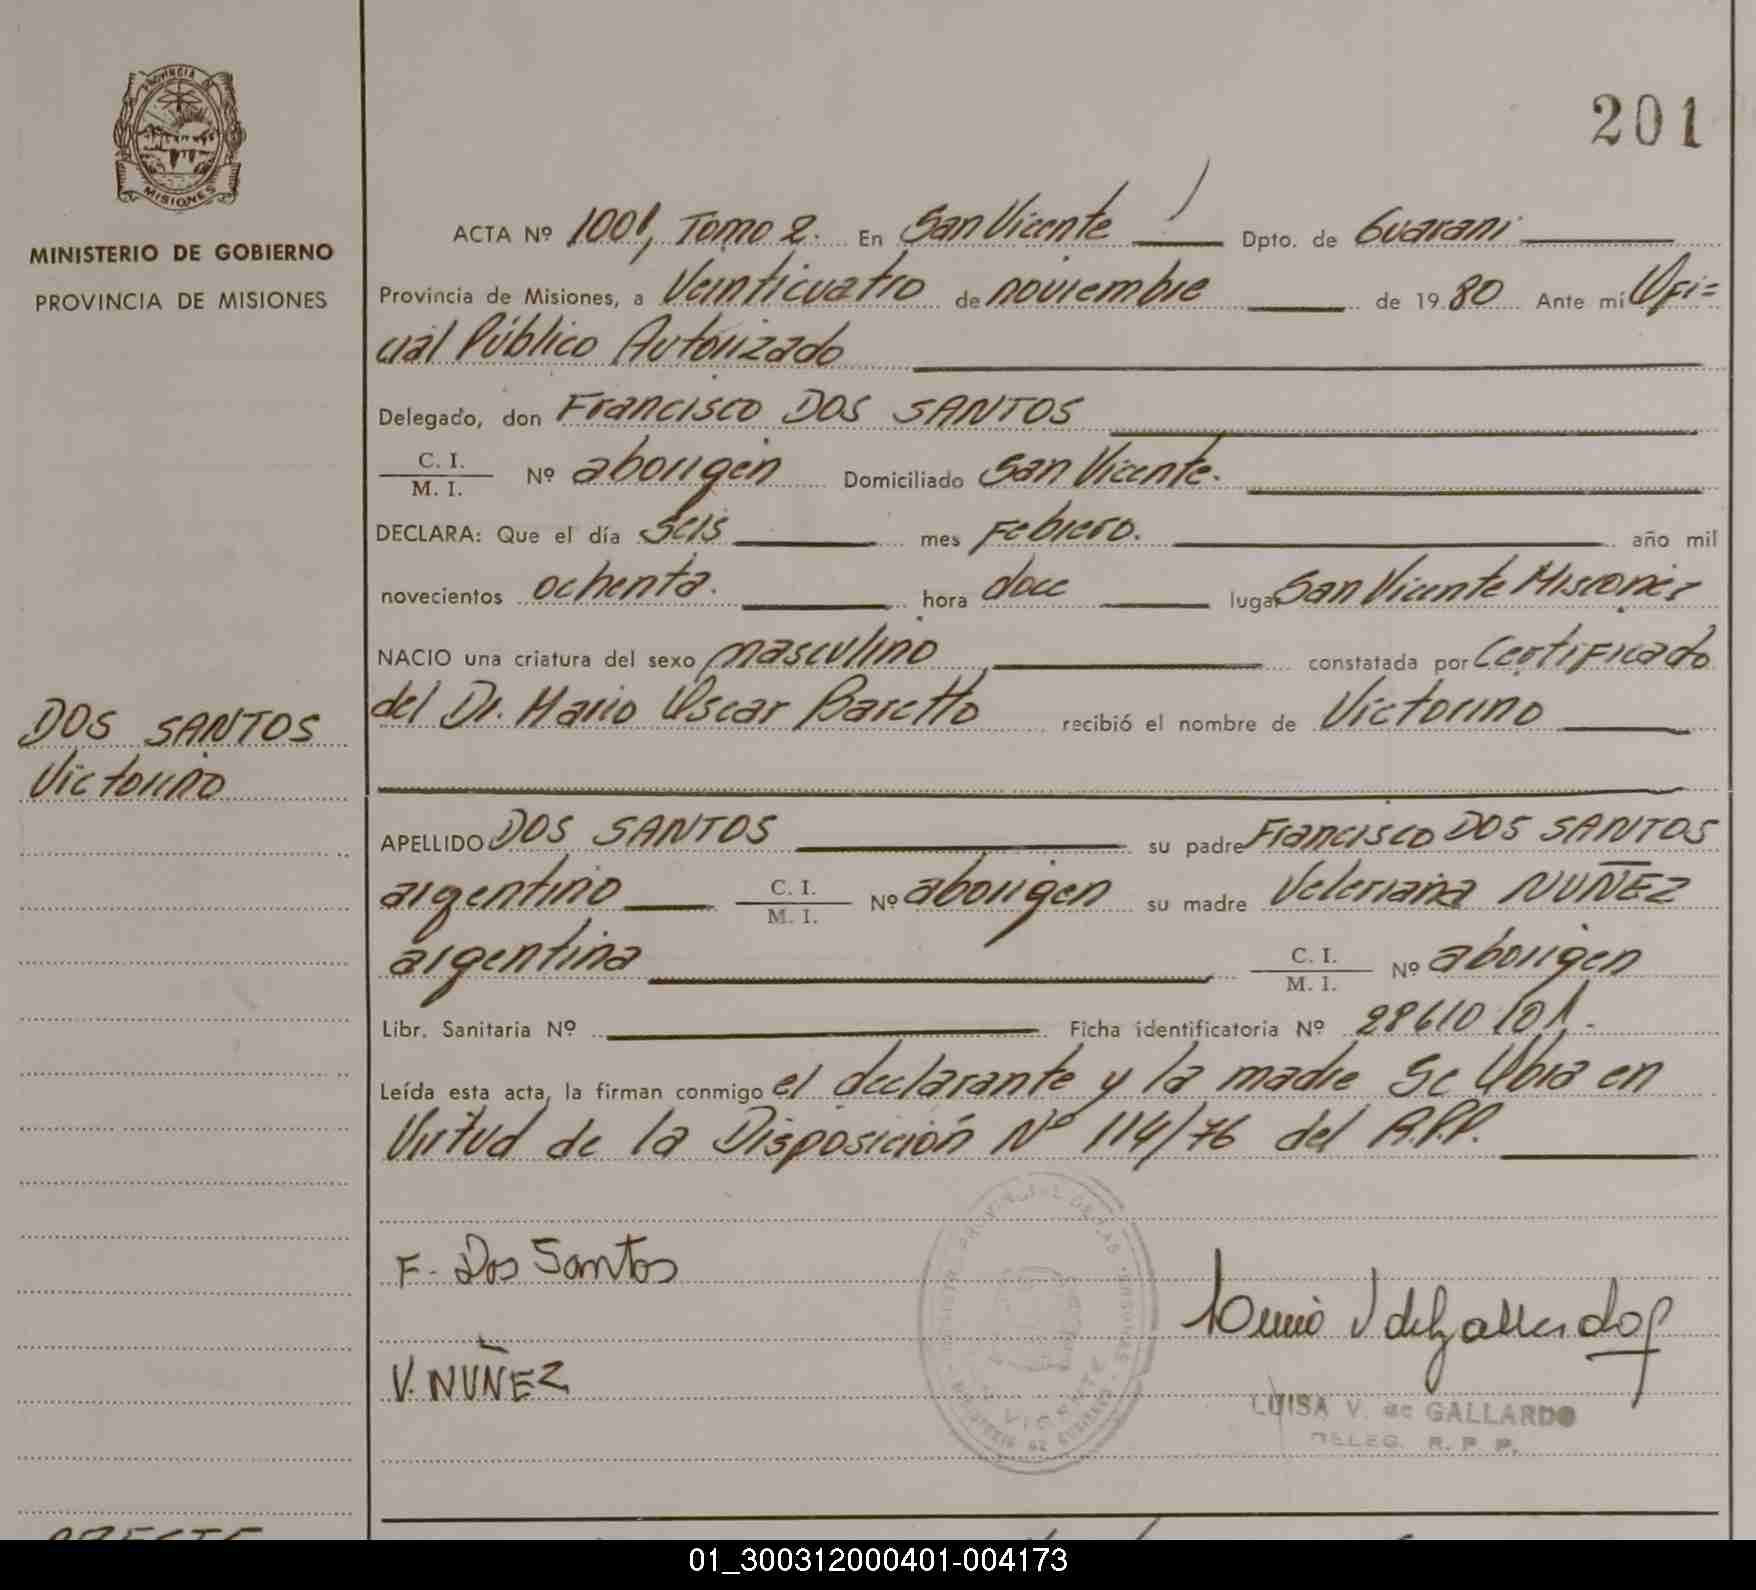 201
PROVINCIA DE
MISIONES
MINISTERIO DE GOBIERNO
PROVINCIA DE MISIONES
ACTA Nº 1001, Tomo 2. En San Vicente Dpto. de Guaraní
Provincia de Misiones, a Veinticuatro de noviembre de 19 80 Ante mí Ofi=
cial Público Autorizado
Delegado, don Francisco DOS SANTOS
C. I.
M. I. Nº aborigen Domiciliado San Vicente.
DECLARA: Que el día seis mes Febrero. año mil
novecientos ochenta. hora doce lugar San Vicente Misiones
NACIO una criatura del sexo masculino constatada por Certificado
del Dr. Mario Oscar Baretto recibió el nombre de Victorino
DOS SANTOS
Victorino
APELLIDO DOS SANTOS su padre Francisco DOS SANTOS
argentino C. I.
M. I. Nº aborigen su madre Veleriana NUÑEZ
argentina C. I.
M. I. Nº aborigen
Libr. Sanitaria Nº Ficha identificatoria Nº 28610/01.
Leída esta acta, la firman conmigo el declarante y la madre Se Obra en
Virtud de la Disposición Nº 114/76 del R.P.P.
F. Dos Santos
V. NUÑEZ
LUISA V. de GALLARDO
DELEG. R. P. P.
01_300312000401-004173